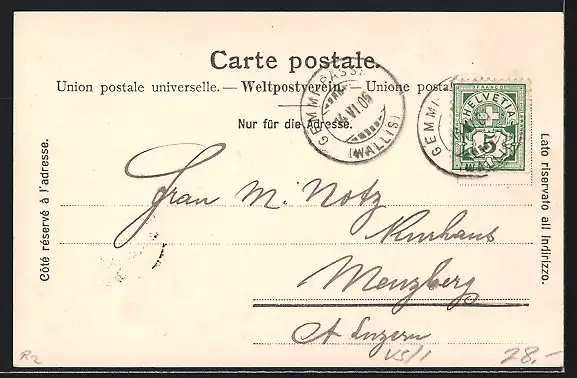 Carte postale.
Union postale universelle. — Weltpostverein. — Unione posta
Nur für die Adresse.
GEMMI-PASSH
14 VI.06
(WALLIS)
GEMMI
HELVETIA
5
Côté réservé à l'adresse.
Lato riservato all indirizzo.
Frau M. Notz
Kurhaus
Menzberg
Ct Luzern
R2
VS/1
28,-